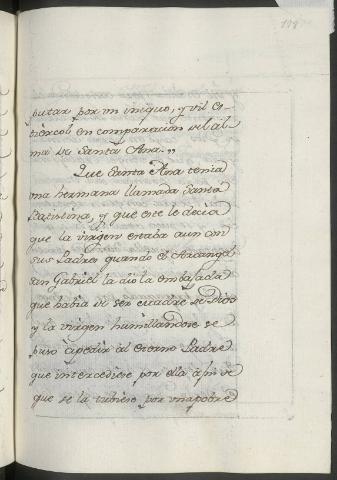 putar por un iniquo, y vil es-
tiercol en comparacion del al
ma de Santa Ana."
Que Santa Ana tenia
una hermana llamada Santa
Baptistina, y que este le decia
que la virgen estaba aun con
sus Padres quando el Arcangel
san Gabriel la dio la embajada
que habia de ser madre de Dios
y la virgen humillandose se
puso à pedir al eterno Padre
que intercediese por ella à fin de
que se la tubiese por una pobre